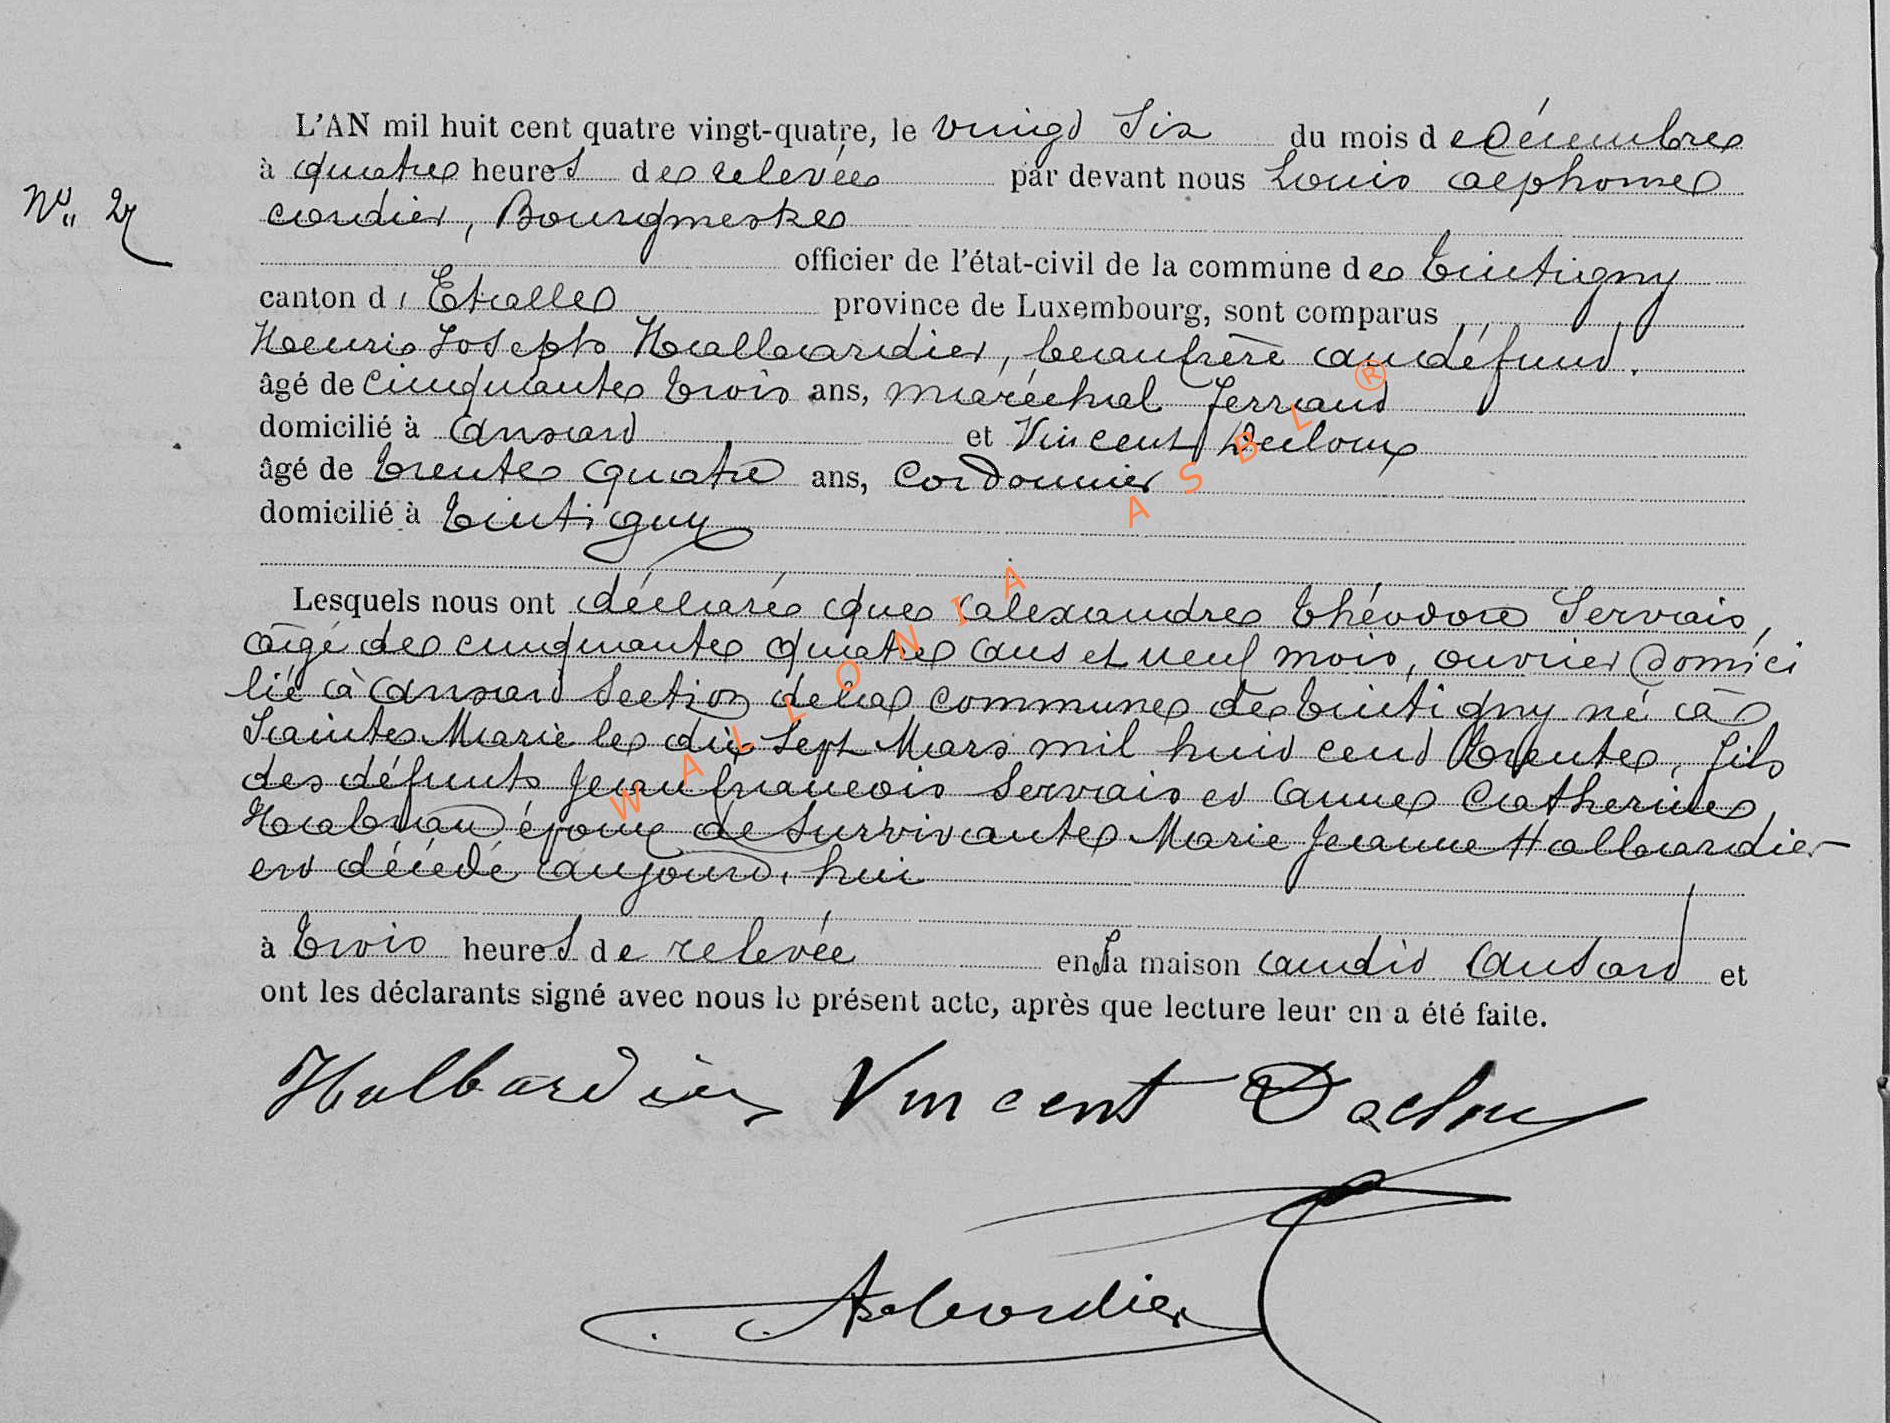 L'AN mil huit cent quatre vingt-quatre, le vingt six du mois de Décembre
à quatre heures de relevée par devant nous Louis alphonse
Nº 27
cordier, Bourgmestre
officier de l'état-civil de la commune de Tintigny
canton d'Etalle province de Luxembourg, sont comparus
Henri Joseph Halbardier, beaufrère au défunt.
âgé de cinquante trois ans, maréchal ferrand
domicilié à ansard et Vincent
âgé de trente quatre ans, Cordonnier
domicilié à Tintigny
Lesquels nous ont déclaré que alexandre théodore Servais,
agé de cinquante quatre ans et neuf mois, ouvrier domici
lié à ansard Section dela commune de Tintigny né à
Sainte Marie le dix Sept Mars mil huit cent trente, fils
des défunts Jean francois Servais et anne Catherine
époux de Survivante Marie Jeanne Halbardier
est décédé aujourd'hui
à trois heures de relevée en sa maison audit ansard et
ont les déclarants signé avec nous le présent acte, après que lecture leur en a été faite.
Halbardier Vincent
ALCordier
WALLONIA ASBL ®